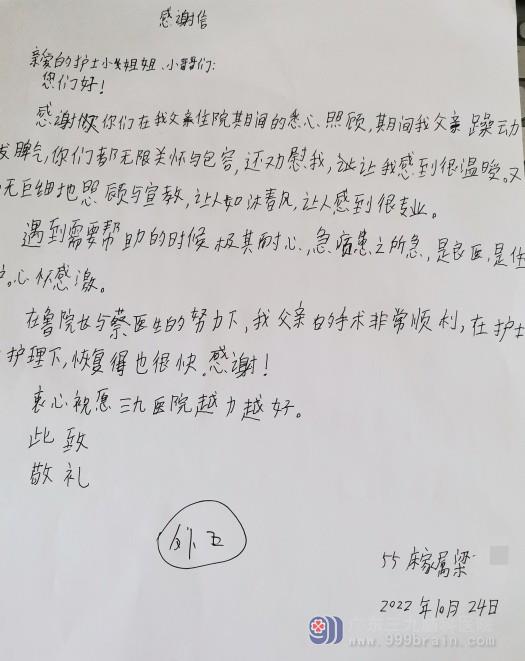 感谢信
亲爱的护士小姐姐、小哥哥们:
您们好!
感谢你们在我父亲住院其期间的悉心照顾,期间我父亲躁动
发脾气,你们都无限关怀与包容,还劝慰我,让我感到很温暖。又
无巨细地照顾与宣教,让人如沐春风,让人感到很专业。
遇到需要帮助的时候极其耐心,急病患之所急,是良医,是佳
护。心怀感激。
在鲁院长与蔡医生的努力下,我父亲的手术非常顺利,在护士
护理下,恢复得也很快,感谢!
衷心祝愿三九医院越办越好。
此致
敬礼
外五
55床家属梁
2022年10月24日
广东三九脑科医院
www.999brain.com